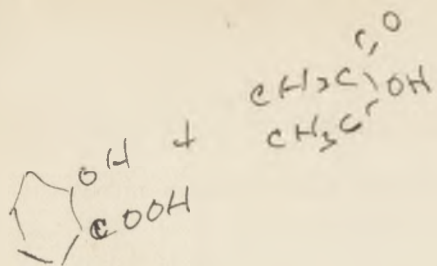 O
CH3C OH
+ CH3C
OH
COOH